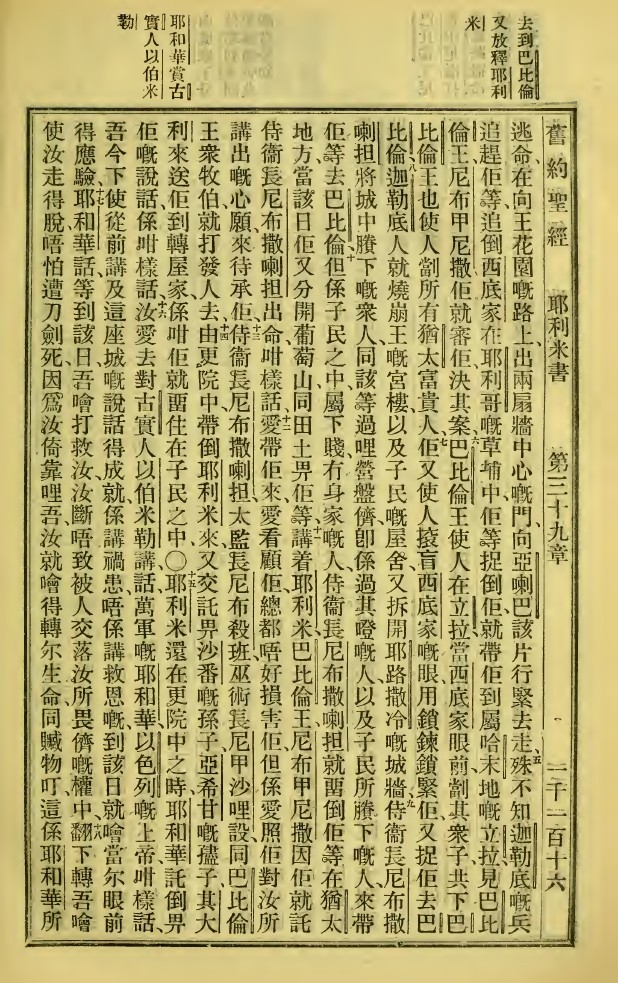 去到巴比倫
又放釋耶利
米
耶和華賞古
實人以伯米
勒
舊約聖經 耶利米書 第三十九章 一千二百十六
逃命、在向王花園嘅路上、出兩扇牆中心嘅門、向亞喇巴該片行緊去走、五殊不知迦勒底嘅兵
追趕佢等、追倒西底家在耶利哥嘅草埔中、佢等捉倒佢、就帶佢到屬哈末地嘅立拉、見巴比
倫王尼布甲尼撒、佢就審佢、決其案、六巴比倫王使人在立拉、當西底家眼前、劏其衆子、共下巴
比倫王也使人劏所有猶太富貴人、七佢又使人㨆盲西底家嘅眼、用鎖鍊鎖緊佢、又捉佢去巴
比倫、八迦勒底人就燒崩王嘅宮樓、以及子民嘅屋舍、又拆開耶路撒冷嘅城牆、九侍衞長尼布撒
喇担、將城中賸下嘅衆人、同該等過哩營盤儕、卽係過其嘅人、以及子民所賸下嘅人、來帶
佢等去巴比倫、十但係子民之中、屬下賤冇身家嘅人、侍衞長尼布撒喇担就畱倒佢等在猶太
地方、當該日佢又分開葡萄山同田土畀佢等、十一講着耶利米、巴比倫王尼布甲尼撒因佢就託
侍衞長尼布撒喇担出命、咁樣話、十二愛帶佢來、愛看顧佢、總都唔好損害佢、但係愛照佢對汝所
講出嘅心願、來待承佢、十三侍衞長尼布撒喇担、太監長尼布殺班、巫術長尼甲沙哩設、同巴比倫
王衆牧伯、就打發人去、十四由更院中帶倒耶利米來、又交託畀沙番嘅孫子、亞希甘嘅孻子、其大
利來、送佢到轉屋家、係咁佢就畱住在子民之中、〇十五耶利米還在更院中之時、耶和華託倒畀
佢嘅說話、係咁樣話、十六汝愛去對古實人以伯米勒講話、萬軍嘅耶和華、以色列嘅上帝咁樣話、
吾今下使從前講及這座城嘅說話得成就、係講禍患、唔係講救恩嘅、到該日就噲當尔眼前
得應驗、十七耶和華話、等到該日、吾噲打救汝、汝斷唔致被人交落汝所畏儕嘅權中、十八翻下轉吾噲
使汝走得脫、唔怕遭刀劍死、因爲汝倚靠哩吾、汝就噲得轉尔生命、同贓物叮、這係耶和華所